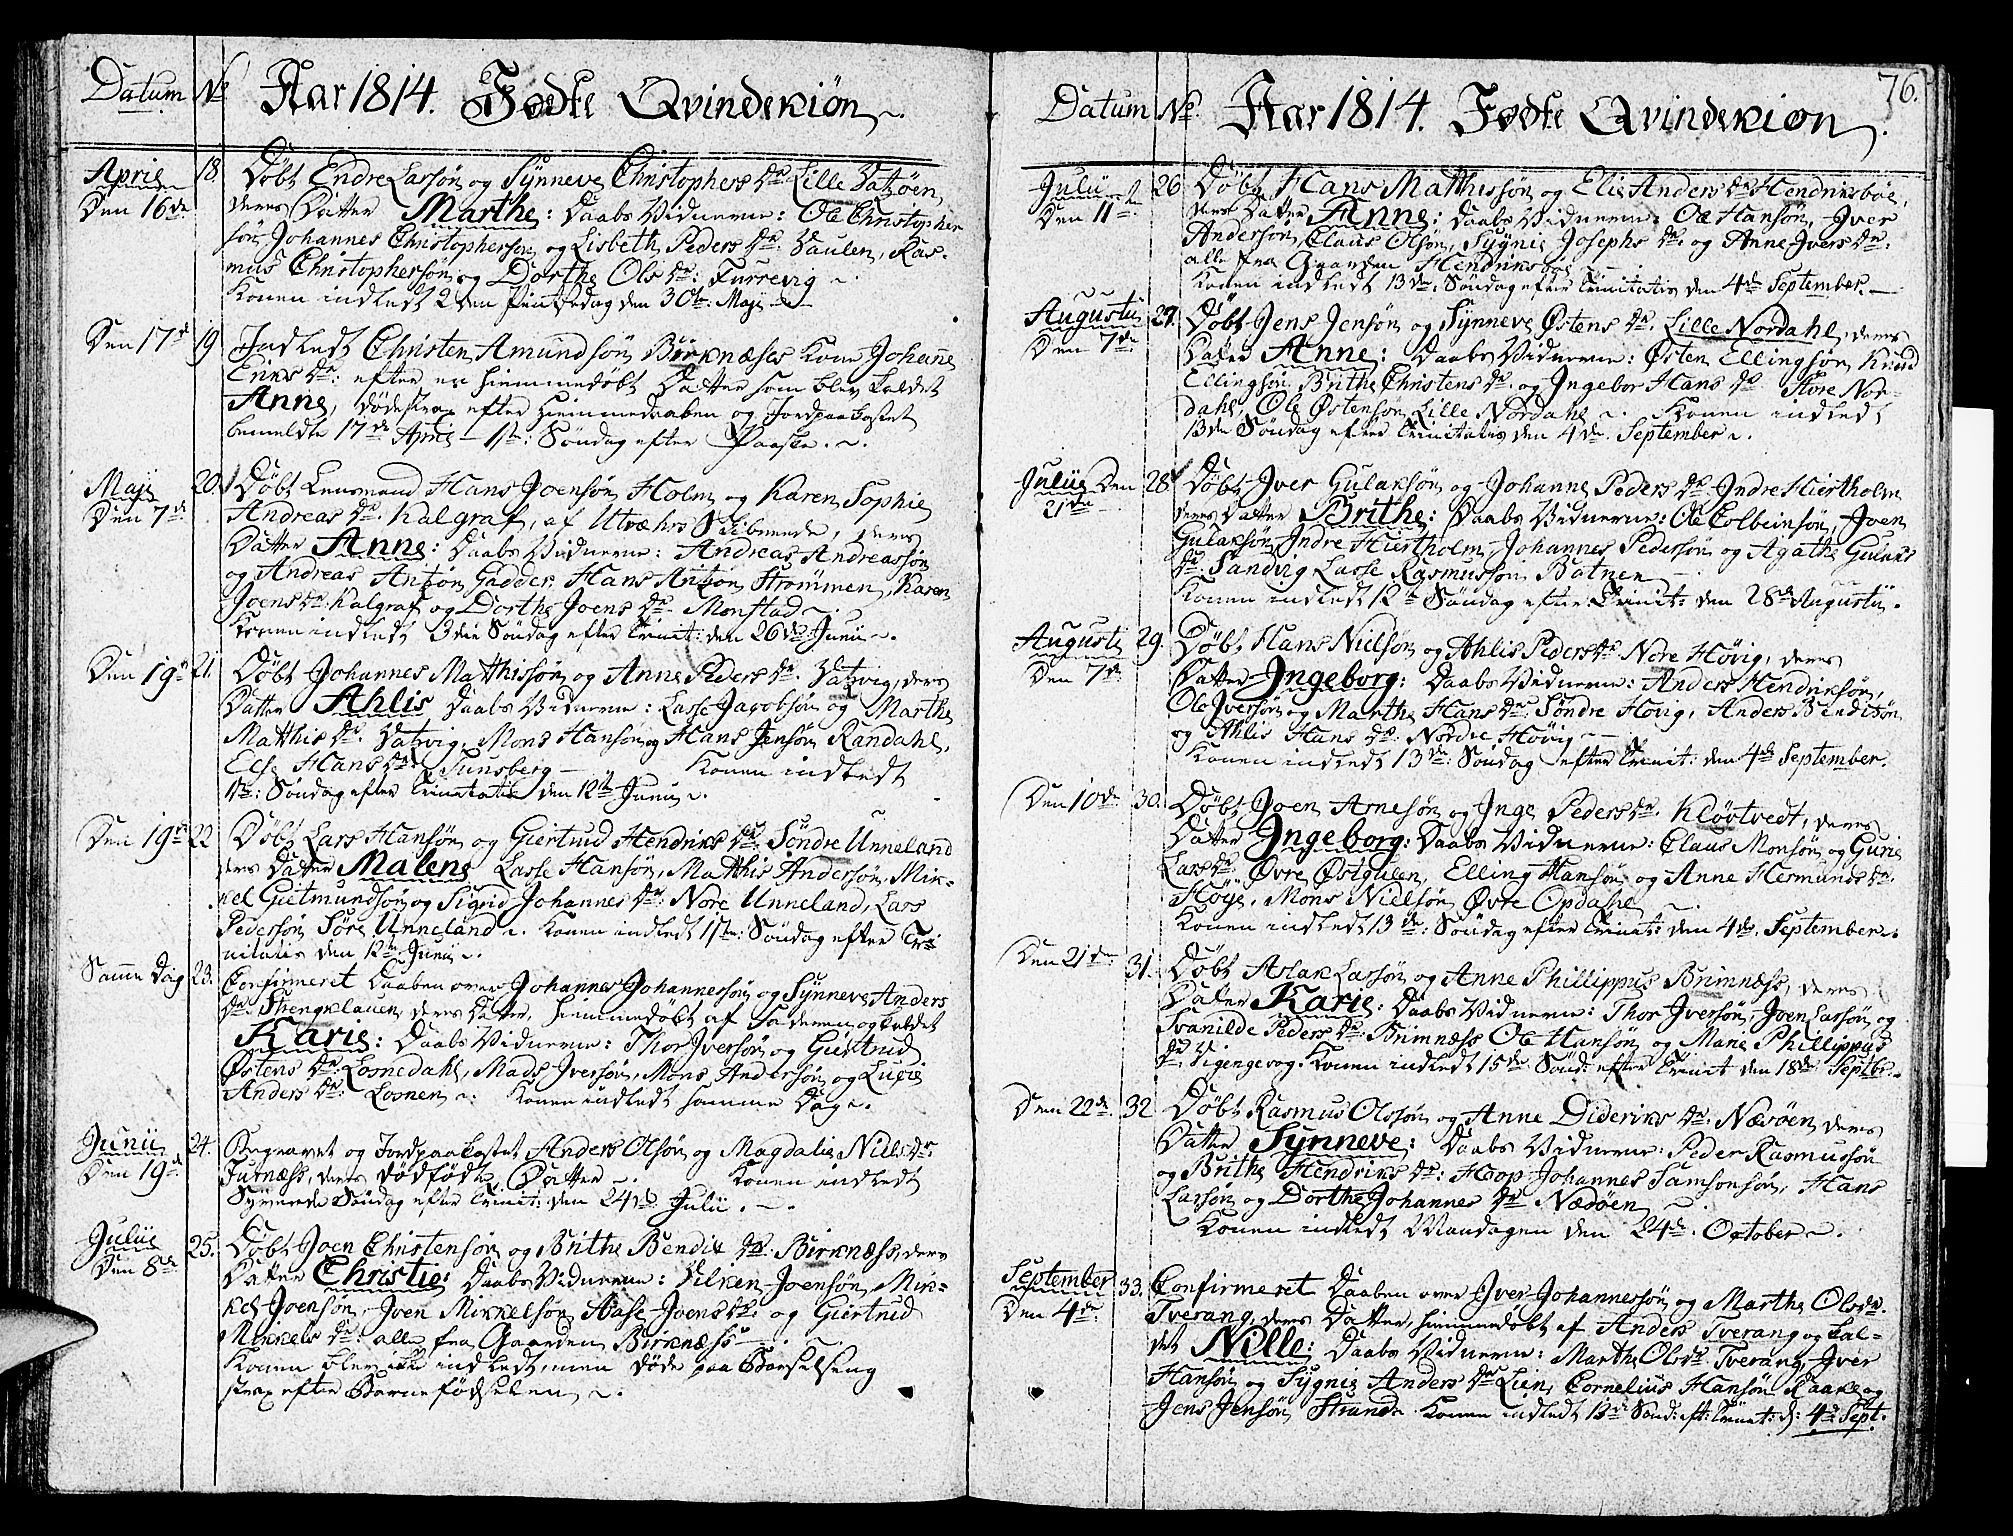 Datum No Aar 1814. Fødte Qvindekiøn
April 18. Døbt Endre Larsøn og Synneve Christophers Dr Lille Batzøen,
Den 16de deres Datter Marthe: Daabs Vidnerne: Ole Christopher
søn, Johannes Christophersøn og Lisbeth Peders Dr. Vaulen, Ras-
mus Christophersøn og Dorthe Ols Dr: Furrevig
Konen indledt 2den Pintsedag den 30te Maji
Den 17de 19 Indledt Christen Amundsøn Birknæses Kone Johanne
Eriks Dr: efter en hiemmedøbt Datter som blev kaldet
Anne, døde strax efter Hiemmedaaben og Jordpaakastet
bemeldte 17de April 1ste Søndag efter Paaske.
Maji 20. Døbt Lensmand Hans Joensøn Holm og Karen Sophie
Den 7de Andreas Dr. Kalgraf, af Utvæhrs Skibreede, deres
Datter Anne: Daabs Vidnerne: Andreas Andreassøn
og Andreas Antzøn Gadder, Hans Antzøn Strømmen, Karen
Joens Dr. Kalgraf og Dorthe Joens Dr. Monstad
Konen indledt 3die Søndag efter Trinit: den 26de Junii
Den 19de 21. Døbt Johannes Matthissøn og Anne Peders Dr. Vatzvig, deres
Datter Ahlis Daabs Vidnerne: Lasse Jacobsøn og Marthe
Matthis Dr. Vatzvig, Mons Hansøn og Hans Jensøn Randahl,
Else Hans Dr. Sunsberg Konen indledt
1ste: Søndag efter Trinitatis den 12te Junii
Den 19de 22 Døbt Lars Hansøn og Giertrud Hendriks Dr. Søndre Unneland
deres Datter Malene Lasse Hansøn, Matthis Andersøn, Mik-
kel Gietmundsøn og Sigrid Johannes Dr: Nore Unneland, Lars
Pedersøn Søre Unneland. Konen indledt 1ste: Søndag efter Tri
nitatis den 12te Junii
Samme Dag 23. Confirmeret Daaben over Johannes Johannessøn og Synneve Anders
Dr. Strengklauen, deres Datter, hiemmedøbt af Faderen og kaldet
Karie: Daabs Vidnerne: Thor Iversøn og Giertrud
Østens Dr. Losnedahl, Mads Iversøn, Mons Andersøn og Lucie
Anders Dr: Losnen Konen indledt samme Dag
Junii 24. Begravet og Jordpaakastet Anders Olsøn og Magdalie Niels Dr.
Den 19de Furnæss, deres dødfødte Datter Konen indledt
Syvende Søndag efter Trinit: den 24de Julii.
Julii 25. Døbt Joen Christensøn og Brithe Bendix Dr. Birknæss, deres
Den 8de Datter Christie: Daabs Vidnerne: Vilken Joensøn, Mik-
kel Joensøn, Joen Mikkelsøn, Aase Joens Dr. og Giertrud
Mikkels Dr: alle fra Gaarden Birknæss
Konen blev ikke indledt, men døde paa Barselseng
strax efter Barnefødselen
76.
Datum No. Aar 1814. Fødte Qvindekiøn.
Julii 26. Døbt Hans Matthissøn og Elie Anders Dr Hendriksboe,
Den 11te deres Datter Anne: Daabs Vidnerne: Ole Hansøn, Iver
Andersøn, Claus Olsøn, Sygnie Josephs Dr. og Anne Ivers Dr.
alle fra Gaarden Hendriksboe
Konen indledt 13de. Søndag efter Trinitatis den 4de September.
Augustii 27. Døbt Jens Jensøn og Synneve Østens Dr. Lille Nordahl, deres
Den 7de Datter Anne: Daabs Vidnerne: Østen Ellingsøn, Knud
Ellingsøn, Brithe Christens Dr. og Ingebor Hans Dr. Store Nor-
dahl, Ole Østensøn Lille Nordahl. Konen indledt
13de Søndag efter Trinitatis den 4de. September.
Julii Den 28 Døbt Iver Gulaksøn og Johanne Peders Dr. Indre Hiertholm
21de deres Datter Brithe: Daabs Vidnerne: Ole Colbeinsøn, Joen
Gulaksøn Indre Hiertholm, Johannes Pedersøn og Agathe Gulaks
Dr. Sandvig, Lasse Rasmussøn Batnen
Konen indledt 12te Søndag efter Trinit: den 28de Augustii.
Augusti 29. Døbt Hans Nielsøn og Ahlis Peders Dr. Nore Høvig, deres
Den 7de Datter Ingeborg: Daabs Vidnerne: Anders Hendriksøn,
Ole Iversøn og Marthe Hans Dr. Søndre Høvig, Anders Bendixøn,
og Ahlis Hans Dr. Nordre Høvig
Konen indledt 13de: Søndag efter Trinit: den 4de September.
Den 10de 30. Døbt Joen Arnesøn og Inge Peders Dr. Kløvtvedt, deres
Datter Ingeborg: Daabs Vidnerne: Claus Monsøn og Gurie
Lars Dr. Øvre Østgulen, Elling Hansøn og Anne Hermunds Dr.
Høye, Mons Nielsøn Øvre Opdahl
Konen indledt 13de: Søndag efter Trinit: den 4de. September.
Den 21de 31. Døbt Aslak Larsøn og Anne Phillippus Brimnæss, deres
Datter Karie: Daabs Vidnerne: Thor Iversøn, Joen Larsøn og
Svanilde Peders Dr: Brimnæss Ole Hansøn og Marie Phillippus
Dr. Vigengevog. Konen indledt 15de Sønd: efter Trinit den 18de Septbr.
Den 22de. 32 Døbt Rasmus Olssøn og Anne Dideriks Dr. Nædøen, deres
Datter Synneve: Daabs Vidnerne: Peder Rasmussøn
og Brithe Hendriks Dr: Hoop, Johannes Samsonsøn, Hans
Larsøn og Dorthe Johannes Dr Nædøen
Konen indledt Mandagen den 24de October.
September 33. Confirmeret Daaben over Iver Johannessøn og Marthe Olsdr.
Den 4de. Tverang, deres Datter, hiemmedøbt af Anders Tverang og kal-
det Nille: Daabs Vidnerne: Marthe Olsdr. Tverang, Iver
Hansøn og Sygnie Anders Dr Lien, Cornelius Hansøn Kaake og
Jens Jensøn Strand. Konen indledt 13de Sønd: eft: Trinit: d: 4de Sept.